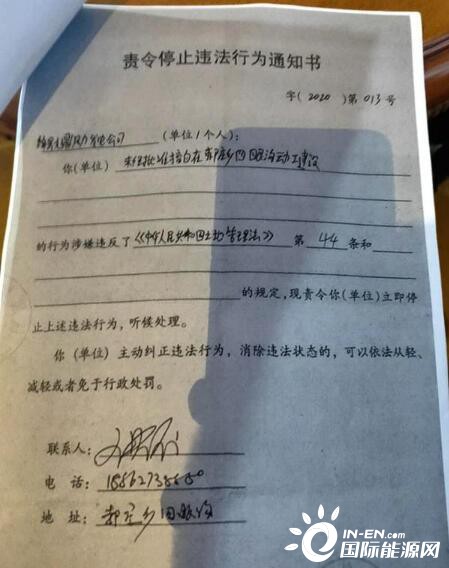 责令停止违法行为通知书
字(2020)第013号
风力发电公司(单位/个人):
你(单位)未经批准擅自在 乡 动工建设
的行为涉嫌违反了《中华人民共和国土地管理法》第44条和
的规定,现责令你(单位)立即停
止上述违法行为,听候处理。
你(单位)主动纠正违法行为,消除违法状态的,可以依法从轻、
减轻或者免于行政处罚。
联系人:
电 话:
地 址: 乡
IN-EN.com
国际能源网